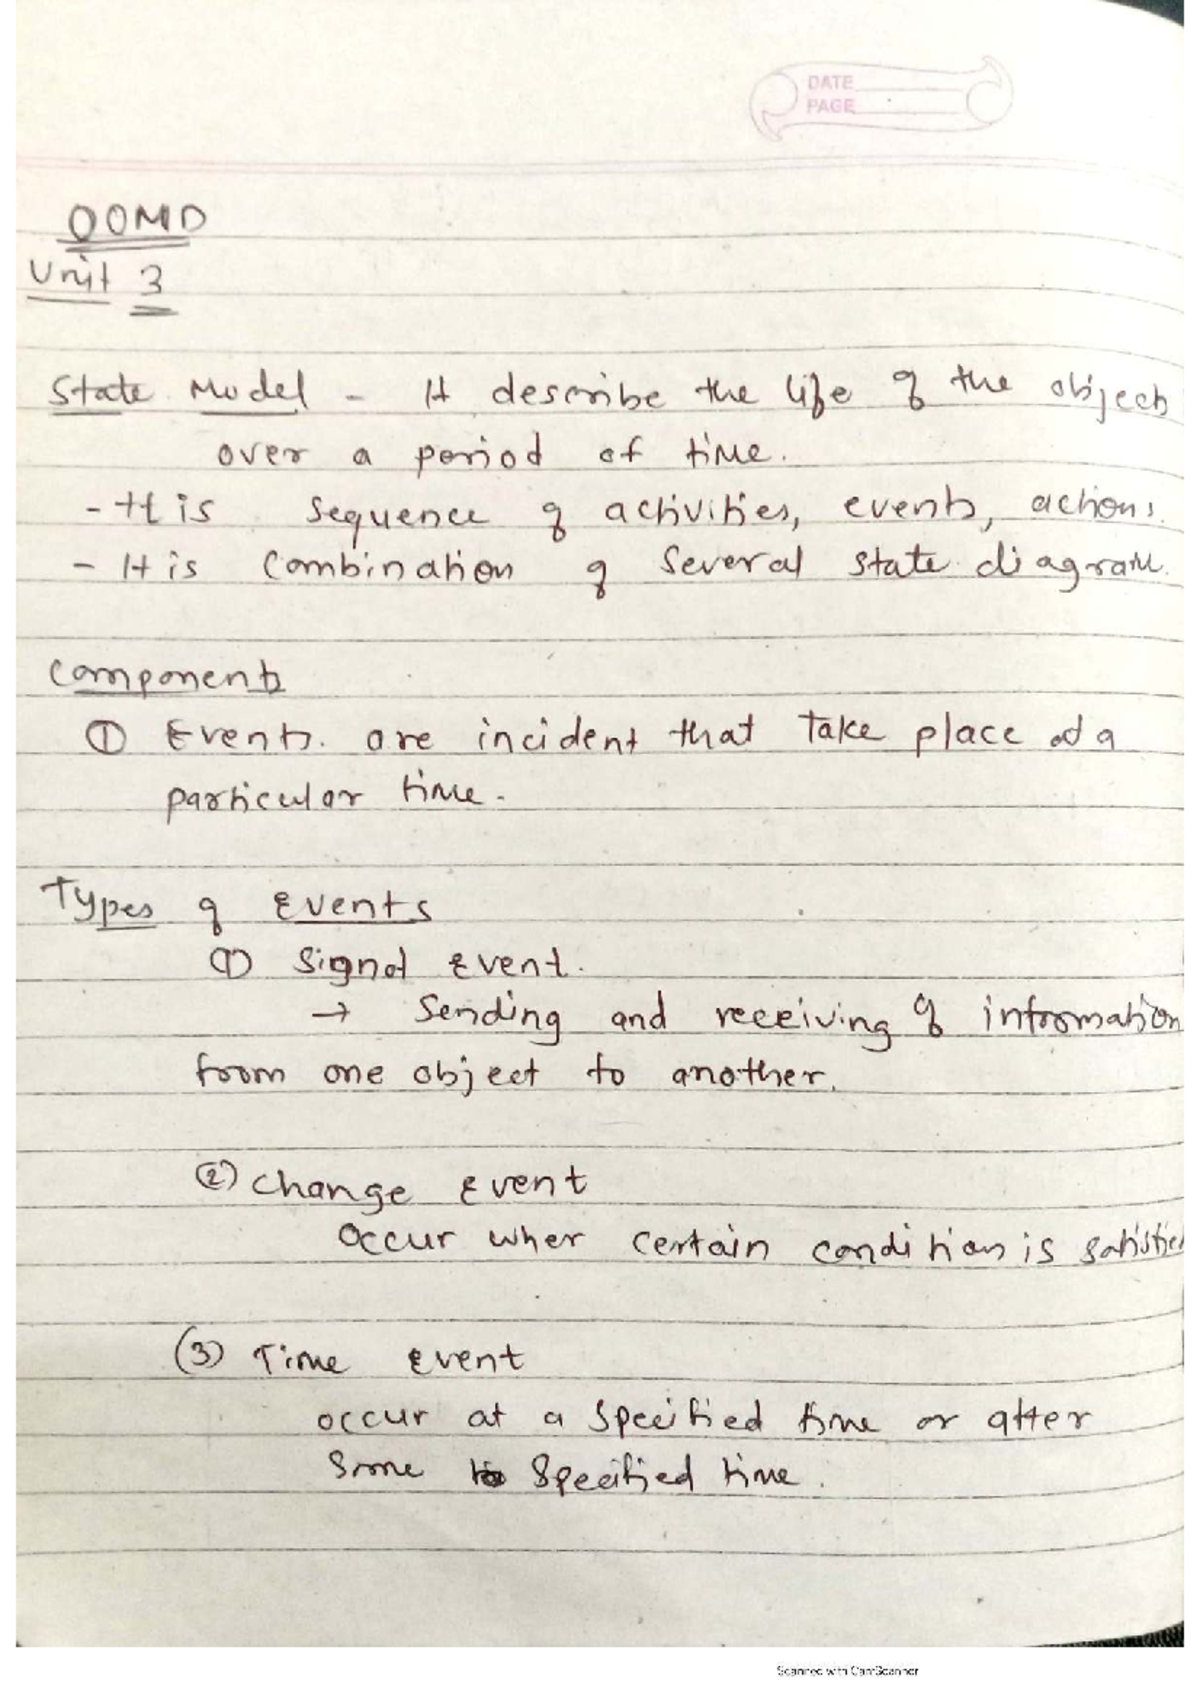 DATE
PAGE
OOMD
Unit 3
State Model - It describe the life of the objects
over a period of time.
- It is sequence of activities, events, actions.
- It is combination of several state diagram.
Components
① Events are incident that take place at a
particular time.
Types of Events
① Signal Event.
→ Sending and receiving of information
from one object to another.
② Change Event
Occur when certain condition is satisfied
(3) Time Event
occur at a specified time or after
some specified time.
Scanned with CamScanner